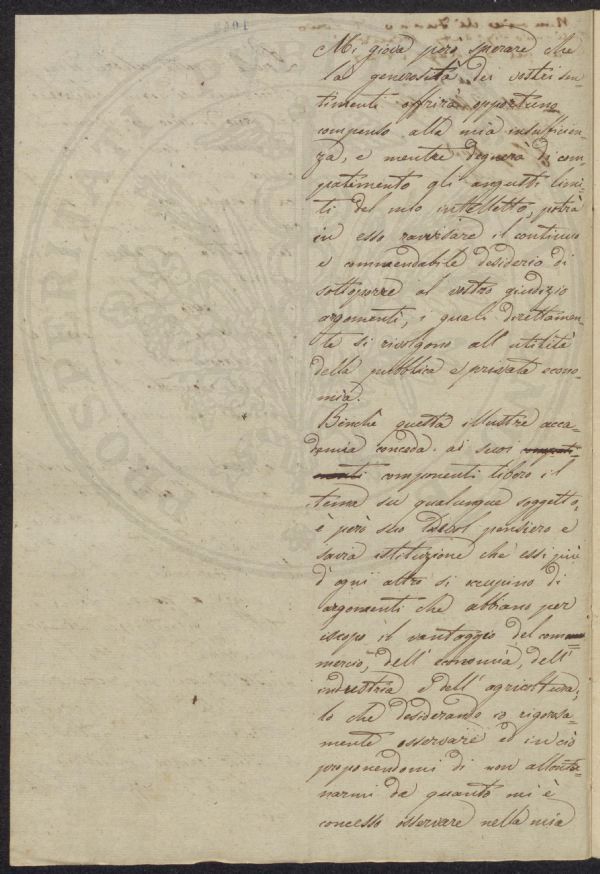 Mi giova però sperare che
la generosità dei vostri sen=
timenti offrirà opportuno
compenso alla mia insufficien=
za, e mentre degnerà di com=
patimento gli angusti limi=
ti del mio intelletto, potrà
in esso ravvisare il continuo
e commendabile desiderio di
sottoporre al vostro giudizio
argomenti, i quali direttamen=
te si rivolgono all' utilità
della pubblica e privata econo=
mia.
Benchè questa illustre acca=
demia conceda ai suoi
componenti libero il
tema su qualunque soggetto,
è però suo pensiero e
savia istituzione che essi più
d' ogni altro si occupino di
argomenti che abbiano per
iscopo il vantaggio del com=
mercio, dell' economia, dell'
industria e dell' agricoltura;
lo che desiderando io rigorosa=
mente osservare ed in ciò
proponendomi di non allonta=
narmi da quanto mi è
concesso osservare nella mia